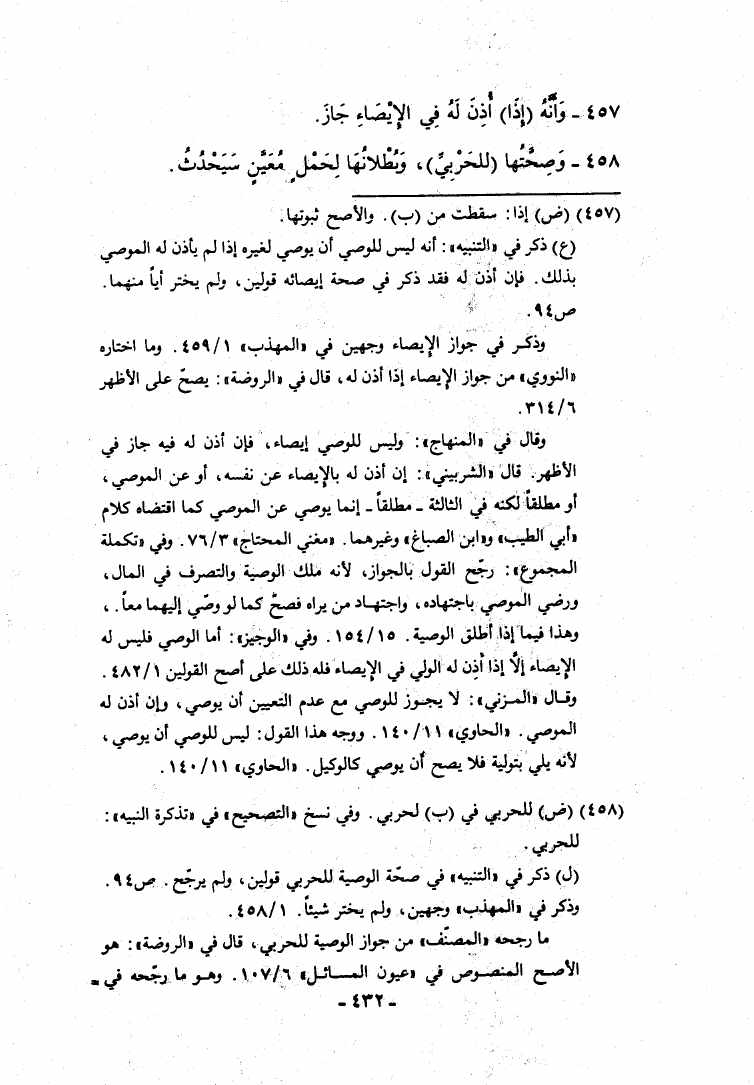 ٤٥٧ - وَأَنَّهُ (إِذَا) أُذِنَ لَهُ فِي الإِيْصَاءِ جَازَ.
٤٥٨ - وَصِحَّتُها (للحَرْبِيِّ)، وَبُطْلانُهَا لِحَمْلٍ مُعَيَّنٍ سَيَحْدُثُ.
(٤٥٧) (ض) إذا: سقطت من (ب). والأصح ثبوتها.
(ع) ذكر في «التنبيه»: أنه ليس للوصي أن يوصي لغيره إذا لم يأذن له الموصي
بذلك. فإن أذن له فقد ذكر في صحة إيصائه قولين، ولم يختر أياً منهما.
ص٩٤.
وذكر في جواز الإيصاء وجهين في «المهذب» ٤٥٩/١. وما اختاره
«النووي» من جواز الإيصاء إذا أذن له، قال في «الروضة»: يصحّ على الأظهر
٣١٤/٦.
وقال في «المنهاج»: وليس للوصي إيصاء، فإن أذن له فيه جاز في
الأظهر. قال «الشربيني»: إن أذن له بالإيصاء عن نفسه، أو عن الموصي،
أو مطلقاً لكنه في الثالثة - مطلقاً - إنما يوصي عن الموصي كما اقتضاه كلام
«أبي الطيب» و«ابن الصباغ» وغيرهما. «مغني المحتاج» ٧٦/٣. وفي «تكملة
المجموع»: رجّح القول بالجواز، لأنه ملك الوصية والتصرف في المال،
ورضي الموصي باجتهاده، واجتهاد من يراه فصحّ كما لو وصّي إليهما معاً. ،
وهذا فيما إذا أطلق الوصية. ١٥٤/١٥. وفي «الوجيز»: أما الوصي فليس له
الإيصاء إلَّا إذا أذن له الولي في الإيصاء فله ذلك على أصح القولين ٤٨٢/١.
وقال «المزني»: لا يجوز للوصي مع عدم التعيين أن يوصي، وإن أذن له
الموصي. «الحاوي» ١٤٠/١١. ووجه هذا القول: ليس للوصي أن يوصي،
لأنه يلي بتولية فلا يصح أن يوصي كالوكيل. «الحاوي» ١٤٠/١١.
(٤٥٨) (ض) للحربي في (ب) لحربي. وفي نسخ «التصحيح» في «تذكرة النبيه»:
للحربي.
(ل) ذكر في «التنبيه» في صحّة الوصية للحربي قولين، ولم يرجّح. ص٩٤.
وذكر في «المهذب» وجهين، ولم يختر شيئاً. ٤٥٨/١.
ما رجحه «المصنّف» من جواز الوصية للحربي، قال في «الروضة»: هو
الأصح المنصوص في «عيون المسائل» ١٠٧/٦. وهو ما رجّحه في =
- ٤٣٢ -